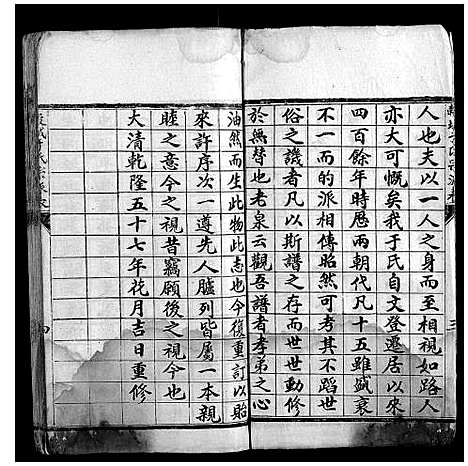 人也夫以一人之身而至相視如路人
亦大可慨矣我于氏自文登遷居以來
四百餘年時歷兩朝代凡十五雖盛衰
不一而的派相傳昭然可考其不蹈世
俗之譏者凡以斯譜之存而世世勤修
於無替也老泉云觀吾譜者孝弟之心
油然而生此物此志也今復重訂以貽
來許序次一遵先人臚列皆屬一本親
睦之意今之視昔竊願後之視今也
大清乾隆五十七年花月吉日重修
三
四